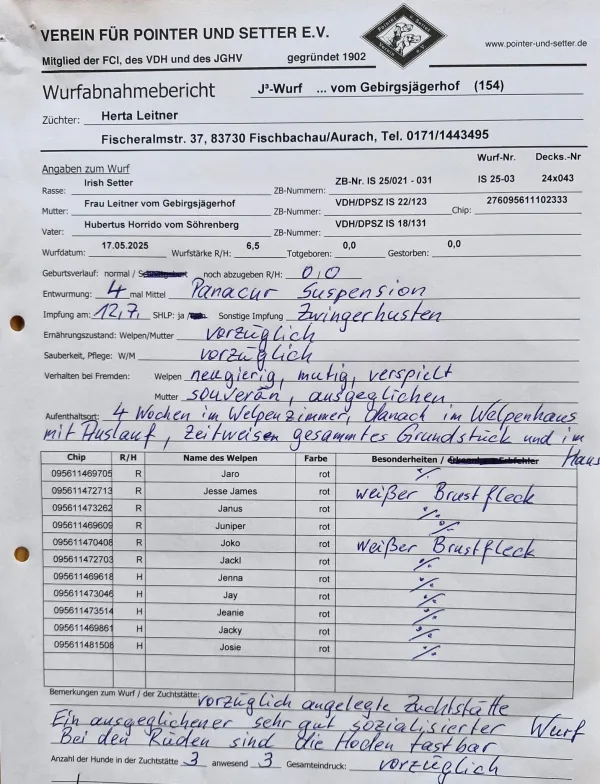 VEREIN FÜR POINTER UND SETTER E.V.
Pointer und Setter
Mitglied der FCI, des VDH und des JGHV gegründet 1902 www.pointer-und-setter.de
Wurfabnahmebericht J³-Wurf ... vom Gebirgsjägerhof (154)
Züchter: Herta Leitner
Fischeralmstr. 37, 83730 Fischbachau/Aurach, Tel. 0171/1443495
Angaben zum Wurf Wurf-Nr. Decks.-Nr
Rasse: Irish Setter ZB-Nummern: ZB-Nr. IS 25/021 - 031 IS 25-03 24x043
Mutter: Frau Leitner vom Gebirgsjägerhof ZB-Nummer: VDH/DPSZ IS 22/123 Chip: 276095611102333
Vater: Hubertus Horrido vom Söhrenberg ZB-Nummer: VDH/DPSZ IS 18/131
Wurfdatum: 17.05.2025 Wurfstärke R/H: 6,5 Totgeboren: 0,0 Gestorben: 0,0
Geburtsverlauf: normal / noch abzugeben R/H: 0,0
Entwurmung: 4 mal Mittel Panacur Suspension
Impfung am: 12,7, SHLP: ja / Sonstige Impfung Zwingerhusten
Ernährungszustand: Welpen/Mutter vorzüglich
Sauberkeit, Pflege: W/M vorzüglich
Verhalten bei Fremden: Welpen neugierig, mutig, verspielt
Mutter souverän, ausgeglichen
Aufenthaltsort: 4 Wochen im Welpenzimmer, danach im Welpenhaus
mit Auslauf, zeitweisen gesammtes Grundstück und im Haus
Chip R/H Name des Welpen Farbe Besonderheiten /
095611469705 R Jaro rot %
095611472713 R Jesse James rot weißer Brustfleck
095611473262 R Janus rot %
095611469609 R Juniper rot %
095611470408 R Joko rot weißer Brustfleck
095611472703 R Jackl rot %
095611469618 H Jenna rot %
095611473046 H Jay rot %
095611473514 H Jeanie rot %
095611469861 H Jacky rot %
095611481508 H Josie rot %
Bemerkungen zum Wurf / der Zuchtstätte: vorzüglich angelegte Zuchtstätte
Ein ausgeglichener sehr gut sozialisierter Wurf
Bei den Rüden sind die Hoden tastbar
Anzahl der Hunde in der Zuchtstätte 3 anwesend 3 Gesamteindruck: vorzüglich